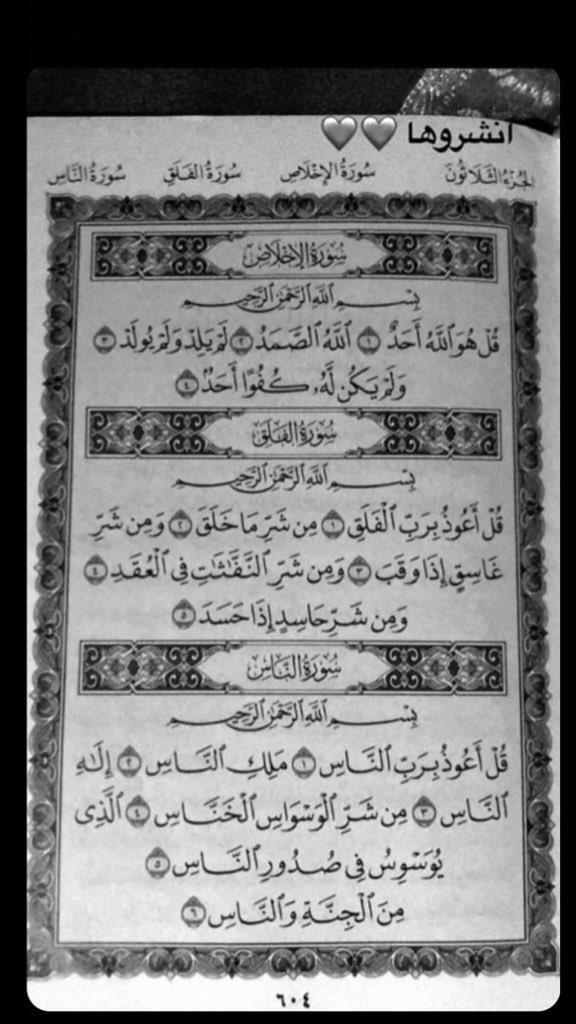 انشروها 🤍🤍
الجزء الثلاثون سورة الإخلاص سورة الفلق سورة الناس
سُورَةُ الإِخْلَاصِ
بِسْمِ ٱللَّهِ ٱلرَّحْمَٰنِ ٱلرَّحِيمِ
قُلْ هُوَ ٱللَّهُ أَحَدٌ ١ ٱللَّهُ ٱلصَّمَدُ ٢ لَمْ يَلِدْ وَلَمْ يُولَدْ ٣
وَلَمْ يَكُن لَّهُۥ كُفُوًا أَحَدٌۢ ٤
سُورَةُ الفَلَقِ
بِسْمِ ٱللَّهِ ٱلرَّحْمَٰنِ ٱلرَّحِيمِ
قُلْ أَعُوذُ بِرَبِّ ٱلْفَلَقِ ١ مِن شَرِّ مَا خَلَقَ ٢ وَمِن شَرِّ
غَاسِقٍ إِذَا وَقَبَ ٣ وَمِن شَرِّ ٱلنَّفَّٰثَٰتِ فِى ٱلْعُقَدِ ٤
وَمِن شَرِّ حَاسِدٍ إِذَا حَسَدَ ٥
سُورَةُ النَّاسِ
بِسْمِ ٱللَّهِ ٱلرَّحْمَٰنِ ٱلرَّحِيمِ
قُلْ أَعُوذُ بِرَبِّ ٱلنَّاسِ ١ مَلِكِ ٱلنَّاسِ ٢ إِلَٰهِ
ٱلنَّاسِ ٣ مِن شَرِّ ٱلْوَسْوَاسِ ٱلْخَنَّاسِ ٤ ٱلَّذِى
يُوَسْوِسُ فِى صُدُورِ ٱلنَّاسِ ٥
مِنَ ٱلْجِنَّةِ وَٱلنَّاسِ ٦
٦٠٤